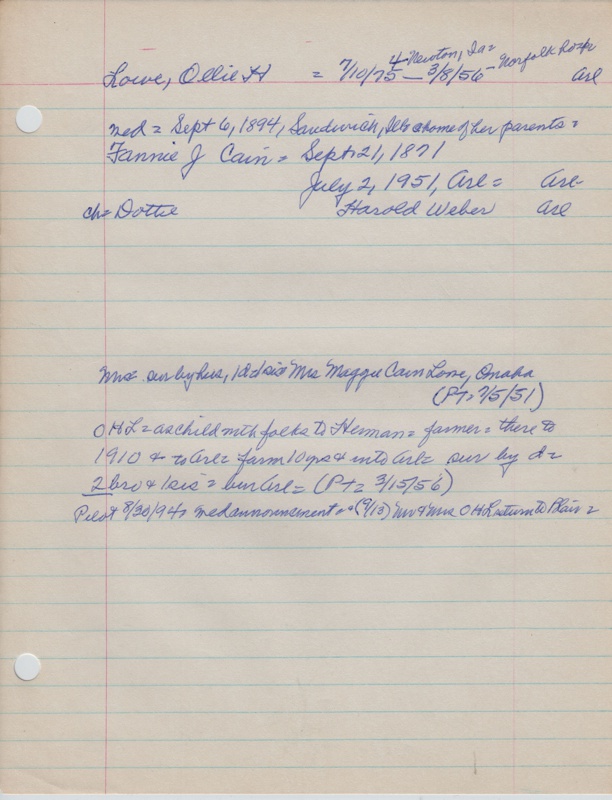 4 Newton, Ia = Norfolk Hosp
Lowe, Ollie H = 7/10/75 — 3/8/56 - Arl
med = Sept 6, 1894, Sandwich, Ills @ home of her parents =
Fannie J Cain = Sept 21, 1871
July 2, 1951, Arl = Arl
ch = Dottie Harold Weber Arl
Mrs = sur by hus, 1 d & sis Mrs Maggie Cain Lowe, Omaha
(PT = 7/5/51)
OHL = as child with folks to Herman = farmer = there to
1910 & to Arl = farm 10 yrs & into Arl = sur by d =
2 bro & 1 sis = bur Arl = (PT = 3/15/56)
Pilot 8/30/94 = med announcement = (9/13) Mr & Mrs OHL return to Blair =